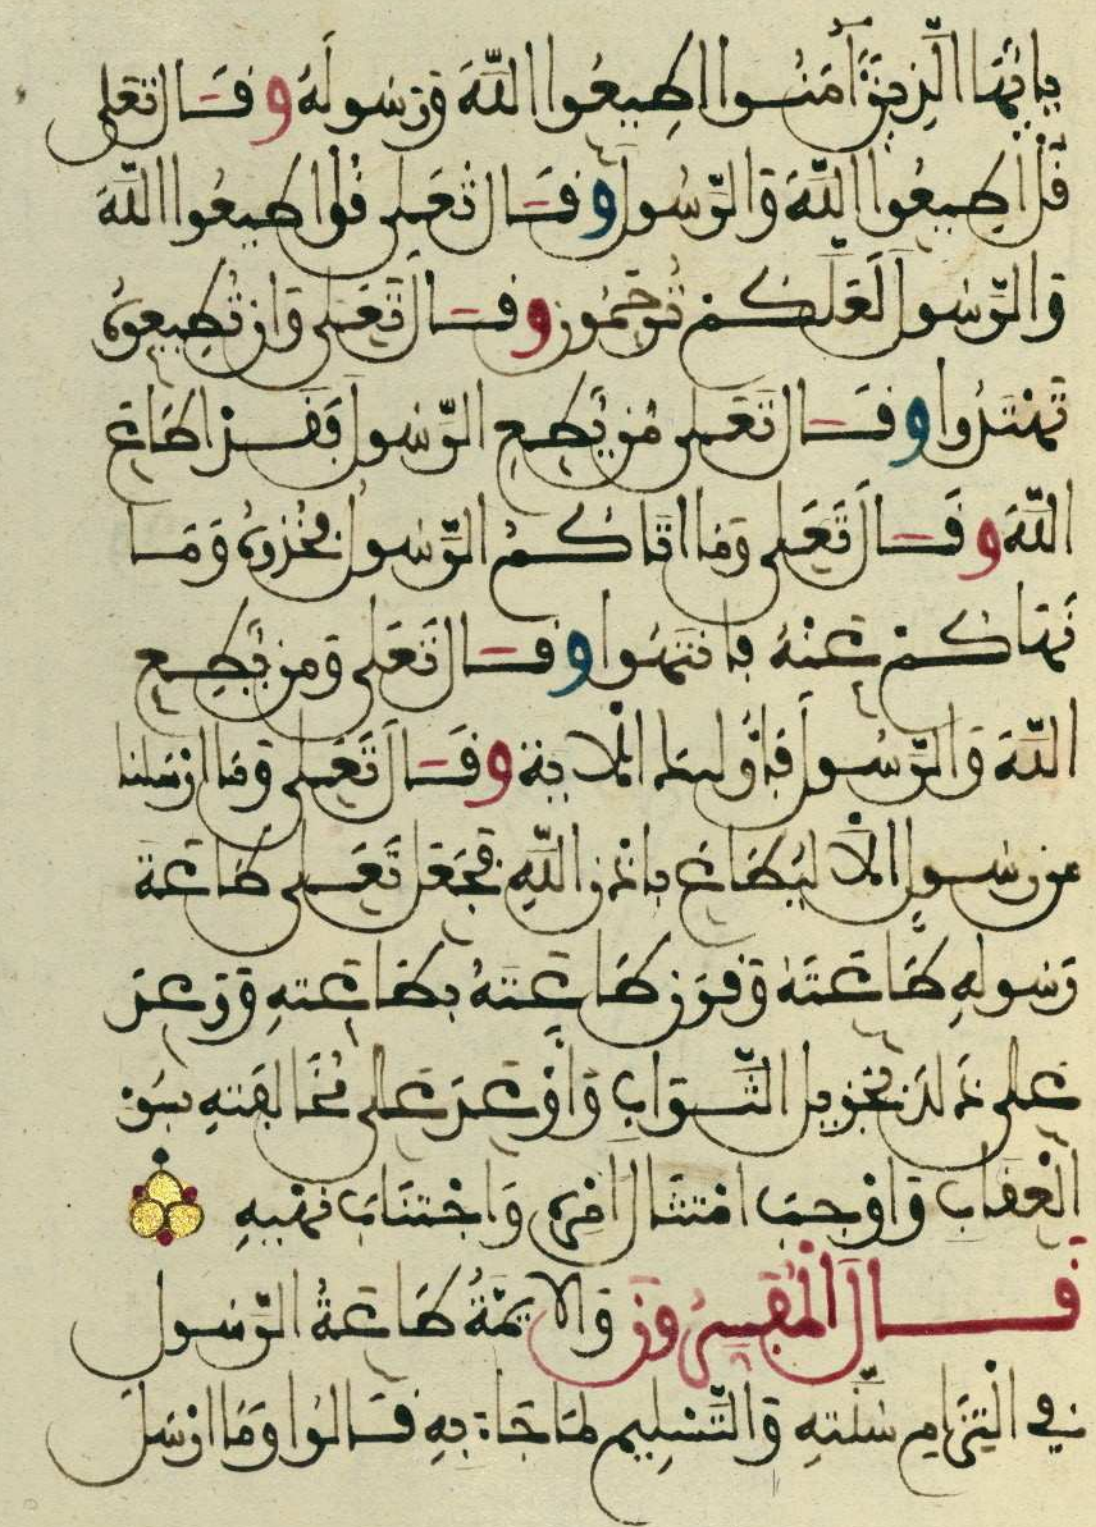 يايها الذين ءامنوا اطيعوا الله ورسوله وقال تعلى
قل اطيعوا الله والرسول وقال تعلى قل اطيعوا الله
والرسول لعلكم ترحمون وقال تعلى وان تطيعوه
تهتدوا وقال تعلى من يطع الرسول فقد اطاع
الله وقال تعلى وما اتاكم الرسول فخذوه وما
نهاكم عنه فانتهوا وقال تعلى ومن يطع
الله والرسول فاوليك الاية وقال تعلى وما ارسلنا
من رسول الا ليطاع باذن الله فجعل تعلى طاعة
رسوله طاعته وقرن طاعته بطاعته ووعد
على ذلك بجزيل الثواب واوعد على مخالفته بسوء
العقاب واوجب امتثال امره واجتناب نهيه
قال المفسرون والايمة طاعة الرسول
في التزام سنته والتسليم لما جاء به قالوا وما ارسل